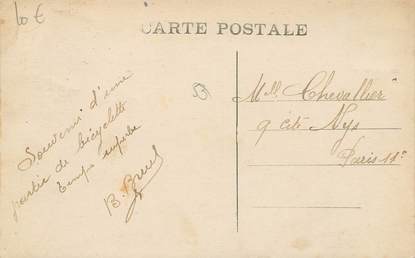 10 €
CARTE POSTALE
Souvenir d'une
partie de bicyclette
temps superbe
B.
Mlle Chevallier
9 cité Nys
Paris 11e